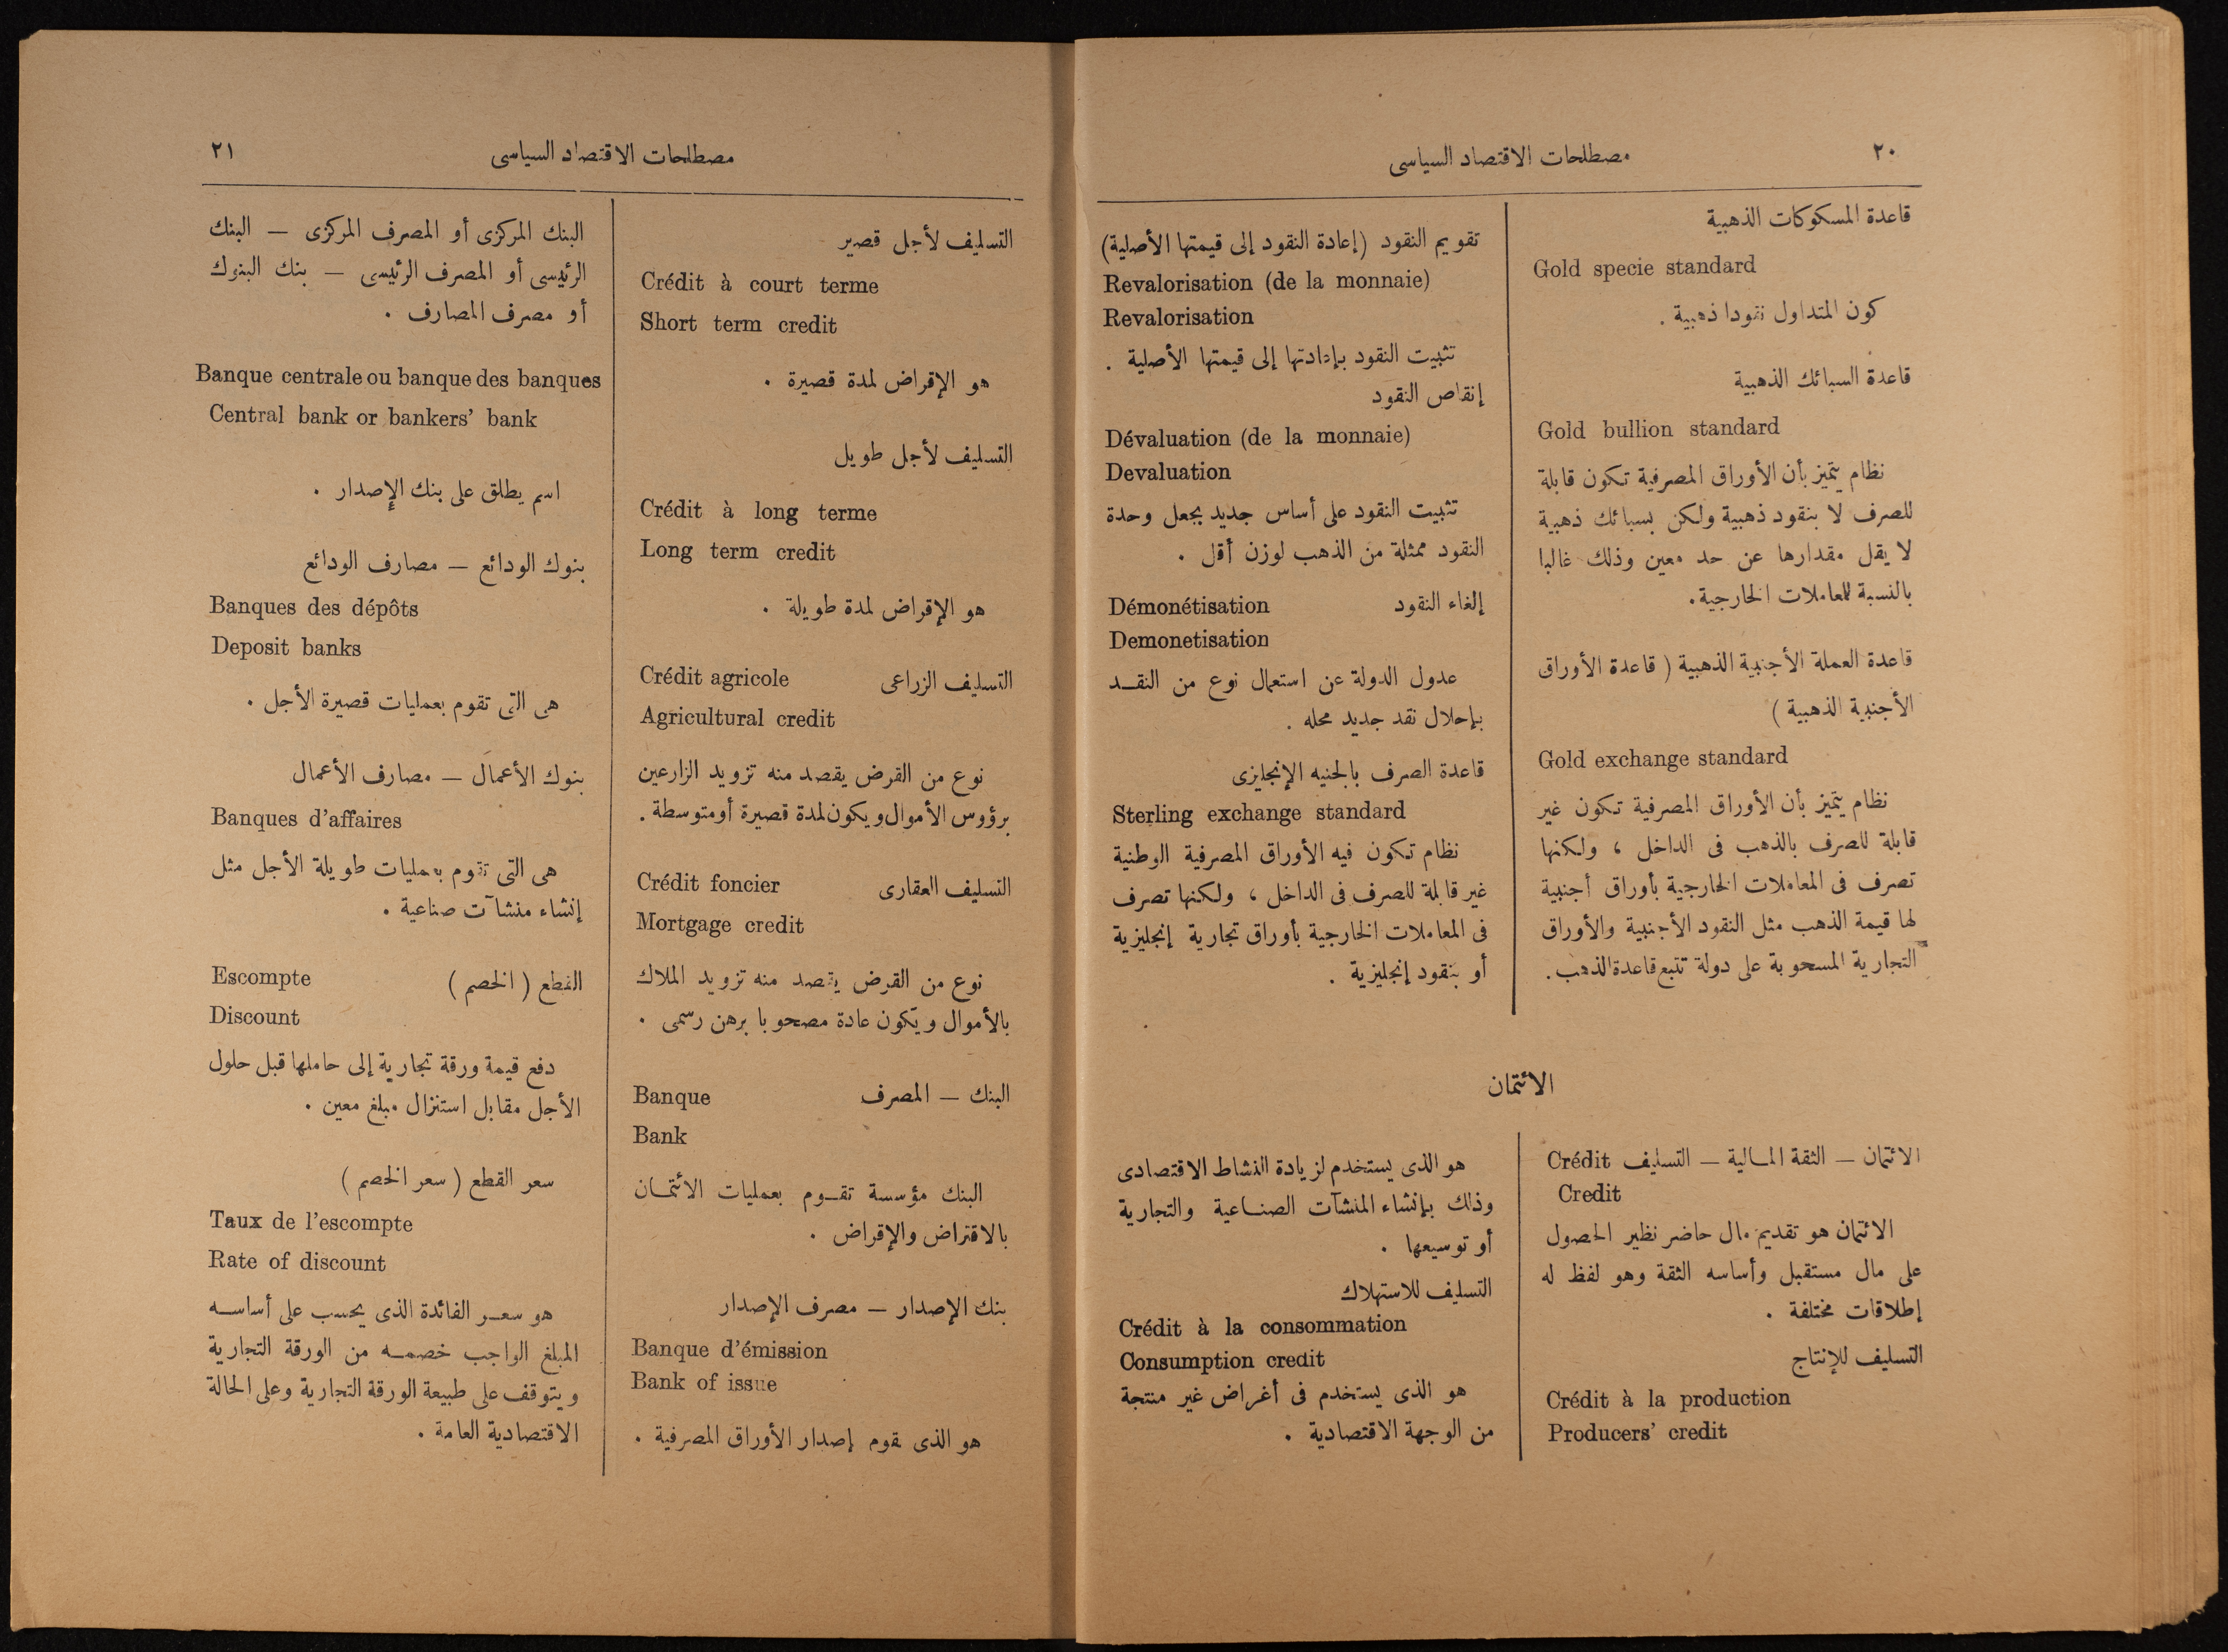 ٢٠
مصطلحات الاقتصاد السياسى
قاعدة المسكوكات الذهبية
Gold specie standard
كون المتداول نقودا ذهبية .
قاعدة السبائك الذهبية
Gold bullion standard
نظام يتميز بأن الأوراق المصرفية تكون قابلة
للصرف لا بنقود ذهبية ولكن بسبائك ذهبية
لا يقل مقدارها عن حد معين وذلك غالبا
بالنسبة للمعاملات الخارجية .
قاعدة العملة الأجنبية الذهبية ( قاعدة الأوراق
الأجنبية الذهبية )
Gold exchange standard
نظام يتميز بأن الأوراق المصرفية تكون غير
قابلة للصرف بالذهب فى الداخل ، ولكنها
تصرف فى المعاملات الخارجية بأوراق أجنبية
لها قيمة الذهب مثل النقود الأجنبية والأوراق
التجارية المسحوبة على دولة تتبع قاعدة الذهب .
تقويم النقود (إعادة النقود إلى قيمتها الأصلية)
Revalorisation (de la monnaie)
Revalorisation
تثبيت النقود بإعادتها إلى قيمتها الأصلية .
إنقاص النقود
Dévaluation (de la monnaie)
Devaluation
تثبيت النقود على أساس جديد بجعل وحدة
النقود ممثلة من الذهب لوزن أقل .
إلغاء النقود Démonétisation
Demonetisation
عدول الدولة عن استعمال نوع من النقـد
بإحلال نقد جديد محله .
قاعدة الصرف بالجنيه الإنجليزى
Sterling exchange standard
نظام تكون فيه الأوراق المصرفية الوطنية
غير قابلة للصرف فى الداخل ، ولكنها تصرف
فى المعاملات الخارجية بأوراق تجارية إنجليزية
أو بنقود إنجليزية .
الائتمان
الائتمان — الثقة المـالية — التسليف Crédit
Credit
الائتمان هو تقديم مال حاضر نظير الحصول
على مال مستقبل وأساسه الثقة وهو لفظ له
إطلاقات مختلفة .
التسليف للإنتاج
Crédit à la production
Producers' credit
هو الذى يستخدم لزيادة النشاط الاقتصادى
وذلك بإنشاء المنشآت الصنـاعية والتجارية
أو توسيعها .
التسليف للاستهلاك
Crédit à la consommation
Consumption credit
هو الذى يستخدم فى أغراض غير منتجة
من الوجهة الاقتصادية .
مصطلحات الاقتصاد السياسى
٢١
التسليف لأجل قصير
Crédit à court terme
Short term credit
هو الإقراض لمدة قصيرة .
التسليف لأجل طويل
Crédit à long terme
Long term credit
هو الإقراض لمدة طويلة .
التسليف الزراعى Crédit agricole
Agricultural credit
نوع من القرض يقصد منه تزويد الزارعين
برؤوس الأموال ويكون لمدة قصيرة أو متوسطة .
التسليف العقارى Crédit foncier
Mortgage credit
نوع من القرض يقصد منه تزويد الملاك
بالأموال ويكون عادة مصحوبا برهن رسمى .
البنك — المصرف Banque
Bank
البنك مؤسسة تقـوم بعمليات الائتمـان
بالاقتراض والإقراض .
بنك الإصدار — مصرف الإصدار
Banque d'émission
Bank of issue
هو الذى يقوم بإصدار الأوراق المصرفية .
البنك المركزى أو المصرف المركزى — البنك
الرئيسى أو المصرف الرئيسى — بنك البنوك
أو مصرف المصارف .
Banque centrale ou banque des banques
Central bank or bankers' bank
اسم يطلق على بنك الإصدار .
بنوك الودائع — مصارف الودائع
Banques des dépôts
Deposit banks
هى التى تقوم بعمليات قصيرة الأجل .
بنوك الأعمال — مصارف الأعمال
Banques d'affaires
هى التى تقوم بعمليات طويلة الأجل مثل
إنشاء منشآت صناعية .
القطع ( الخصم ) Escompte
Discount
دفع قيمة ورقة تجارية إلى حاملها قبل حلول
الأجل مقابل استنزال مبلغ معين .
سعر القطع ( سعر الخصم )
Taux de l'escompte
Rate of discount
هو سعـر الفائدة الذى يحسب على أساسـه
المبلغ الواجب خصمـه من الورقة التجارية
ويتوقف على طبيعة الورقة التجارية وعلى الحالة
الاقتصادية العامة .